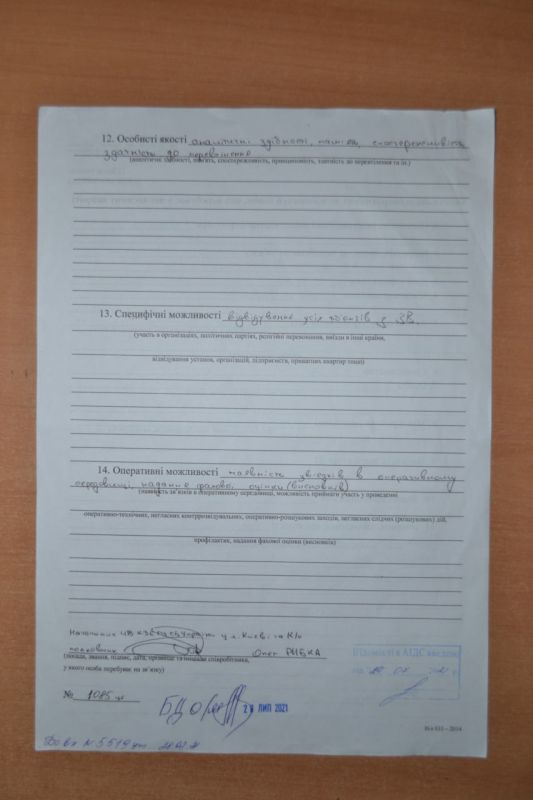 12. Особисті якості аналітичні здібності, пам'ять, спостережливість
здатність до перевтілення
(аналітичні здібності, пам'ять, спостережливість, принциповість, здатність до перевтілення та ін.)
13. Специфічні можливості відвідування усіх об'єктів з
(участь в організаціях, політичних партіях, релігійні переконання, виїзди в інші країни,
відвідування установ, організацій, підприємств, приватних квартир тощо)
14. Оперативні можливості наявність зв'язків в оперативному
середовищі, надання фахової оцінки (висновків)
(наявність зв'язків в оперативному середовищі, можливість приймати участь у проведенні
оперативно-технічних, негласних контррозвідувальних, оперативно-розшукових заходів, негласних слідчих (розшукових) дій,
профілактик, надання фахової оцінки (висновків)
Начальник у м. Києві та К/о
полковник Олег РИБКА
(посада, звання, підпис, дата, прізвище та ініціали співробітника,
у якого особа перебуває на зв'язку)
Відомості в АІДС введено
№ 1085
ЛИП 2021
№ 5519